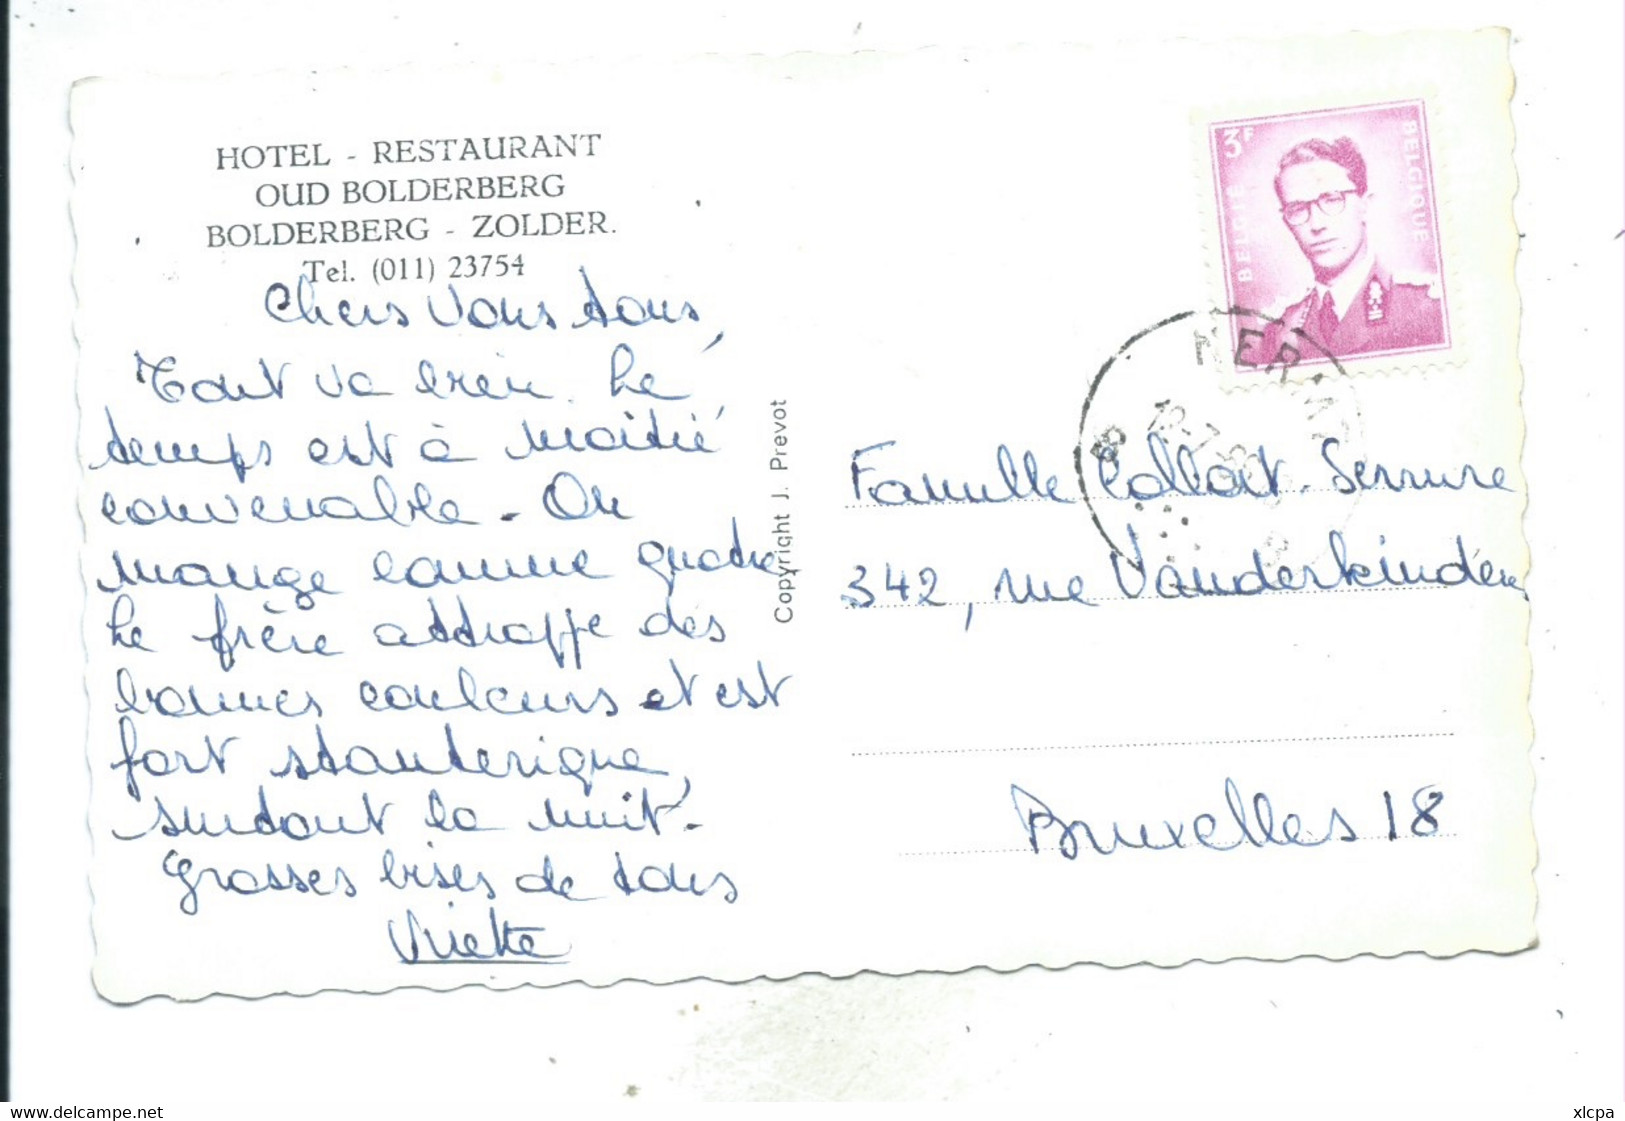 HOTEL - RESTAURANT
OUD BOLDERBERG
BOLDERBERG - ZOLDER.
Tel. (011) 23754
Chers Vous tous,
Tout va bien. Le
temps est à moitié
convenable. On
mange comme quatre
Le frère attrappe des
bonnes couleurs et est
fort stauterique,
surtout la nuit.
Grosses bises de tous
Copyright J. Prevot
3F
BELGIE
BELGIQUE
Famille Colloit-Serrure
342, rue Vanderkinderen
Bruxelles 18
delcampe.net
xlcpa